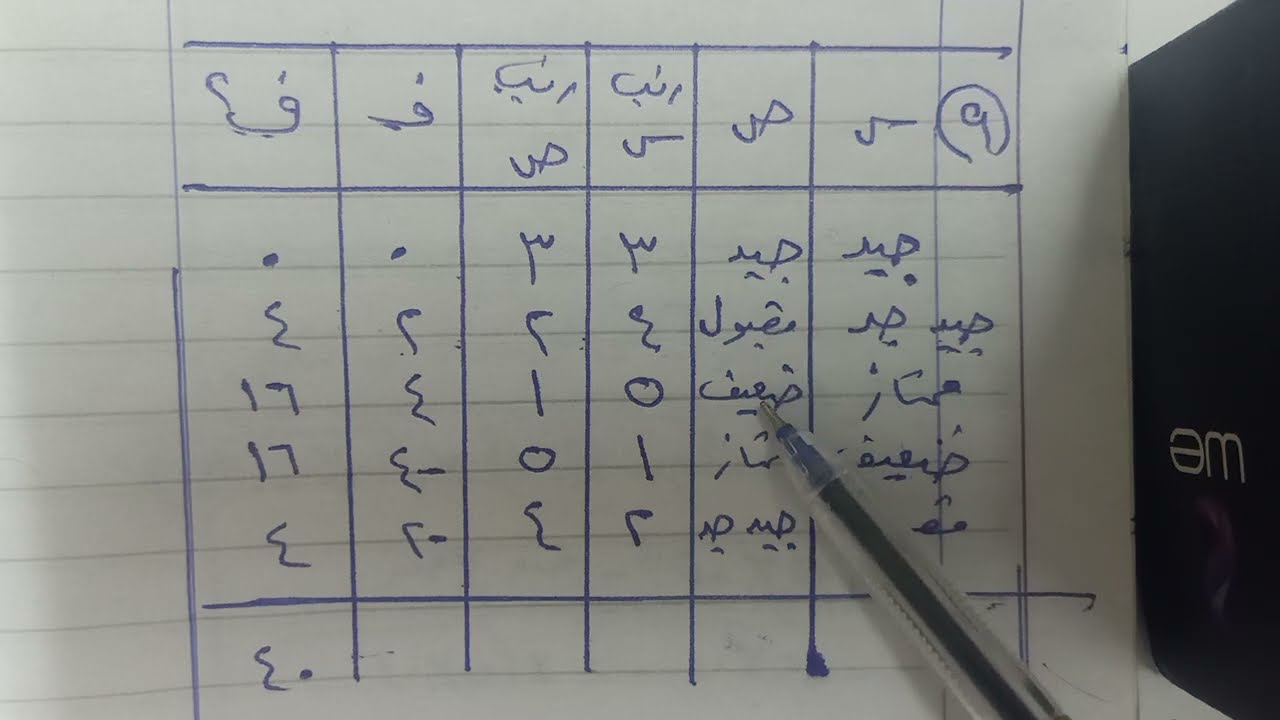 ٥ س ص رتب س رتب ص ف ف٢
جيد جيد ٣ ٣ ٠ ٠
جيد جد مقبول ٤ ٢ ٢ ٤
ممتاز ضعيف ٥ ١ ٤ ١٦
ضعيف ١ ٥ -٤ ١٦
جيد جد ٢ ٤ -٢ ٤
٤٠
we